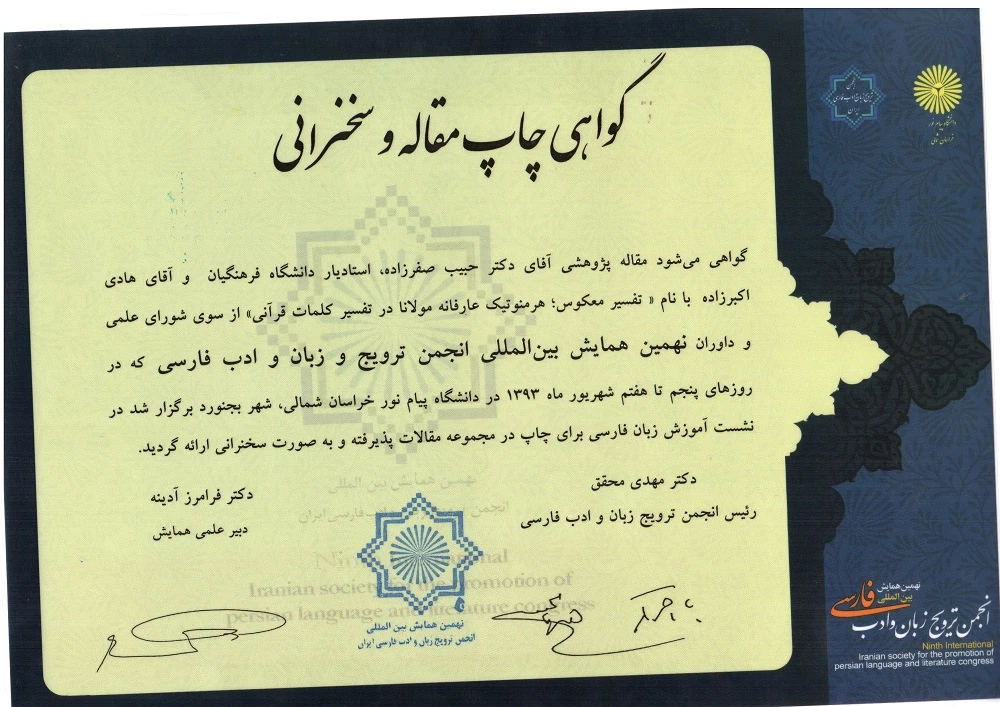 گواهی چاپ مقاله و سخنرانی
گواهی می‌شود مقاله پژوهشی آقای دکتر حبیب صفرزاده، استادیار دانشگاه فرهنگیان و آقای هادی
اکبرزاده با نام « تفسیر معکوس؛ هرمنوتیک عارفانه مولانا در تفسیر کلمات قرآنی» از سوی شورای علمی
و داوران نهمین همایش بین‌المللی انجمن ترویج و زبان و ادب فارسی که در
روزهای پنجم تا هفتم شهریور ماه ۱۳۹۳ در دانشگاه پیام نور خراسان شمالی، شهر بجنورد برگزار شد در
نشست آموزش زبان فارسی برای چاپ در مجموعه مقالات پذیرفته و به صورت سخنرانی ارائه گردید.
دکتر مهدی محقق
رئیس انجمن ترویج زبان و ادب فارسی
دکتر فرامرز آدینه
دبیر علمی همایش
نهمین همایش بین المللی
انجمن ترویج زبان و ادب فارسی ایران
Ninth International
Iranian society for the promotion of
persian language and literature congress
نهمین همایش بین المللی
انجمن ترویج زبان و ادب فارسی ایران
انجمن
ترویج زبان و ادب فارسی
ایران
دانشگاه پیام نور
خراسان شمالی
نهمین همایش
بین المللی
انجمن ترویج زبان و ادب فارسی
Ninth International
Iranian society for the promotion of
persian language and literature congress